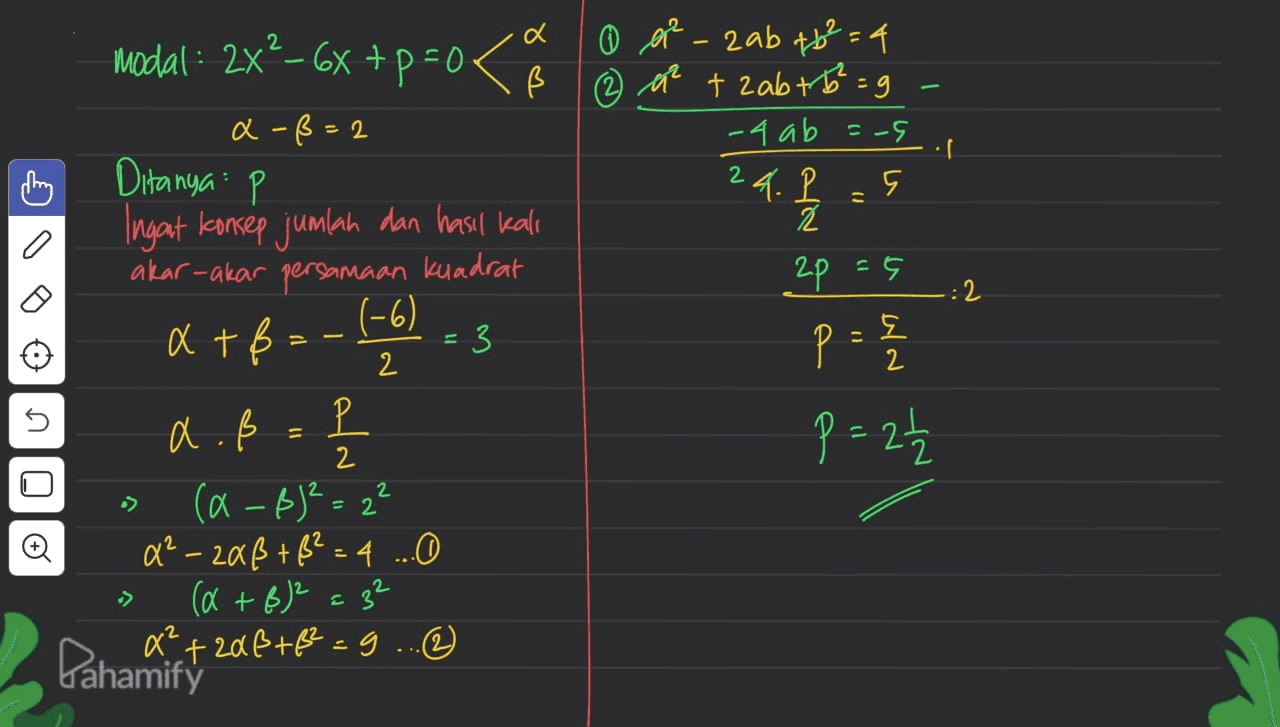 modal : 2x² – 6x + p = 0 < α β
α – β = 2
Ditanya : p
Ingat konsep jumlah dan hasil kali
akar-akar persamaan kuadrat
α + β = - (-6)/2 = 3
α . β = p/2
(α – β)² = 2²
α² – 2αβ + β² = 4 ...①
(α + β)² = 3²
α² + 2αβ + β² = 9 ...②
① a² – 2ab + b² = 4
② a² + 2ab + b² = 9 –
-4ab = -5
.1
2 4. p/2 = 5
2p = 5
:2
p = 5/2
p = 2 1/2
Pahamify